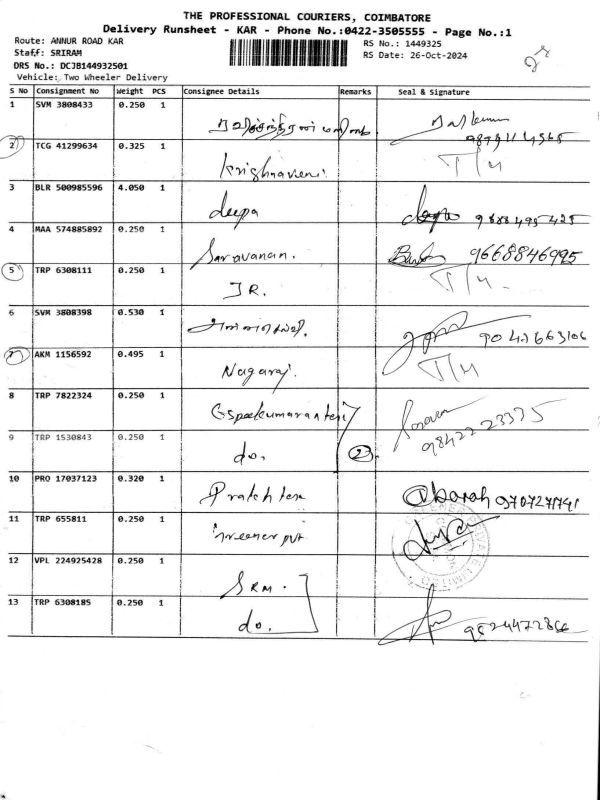 THE PROFESSIONAL COURIERS, COIMBATORE
Delivery Runsheet - KAR - Phone No.:0422-3505555 - Page No.:1
Route: ANNUR ROAD KAR
RS No.: 1449325
Staff: SRIRAM
RS Date: 26-Oct-2024
DRS No.: DCJB144932501
Vehicle: Two Wheeler Delivery
S No Consignment No Weight PCS Consignee Details Remarks Seal & Signature
1 SVM 3808433 0.250 1
2 TCG 41299634 0.325 1
Krishnaveni T/M
3 BLR 500985596 4.050 1
deepa deepa 9688495425
4 MAA 574885892 0.250 1
Saravanan. 9668846995
5 TRP 6308111 0.250 1
JR. T/M.
6 SVM 3808398 0.530 1
7 AKM 1156592 0.495 1
Nagaraj. T/M
8 TRP 7822324 0.250 1
9842223375
9 TRP 1530843 0.250 1
do. 23
10 PRO 17037123 0.320 1
9707271741
11 TRP 655811 0.250 1
12 VPL 224925428 0.250 1
SRM.
13 TRP 6308185 0.250 1
do.